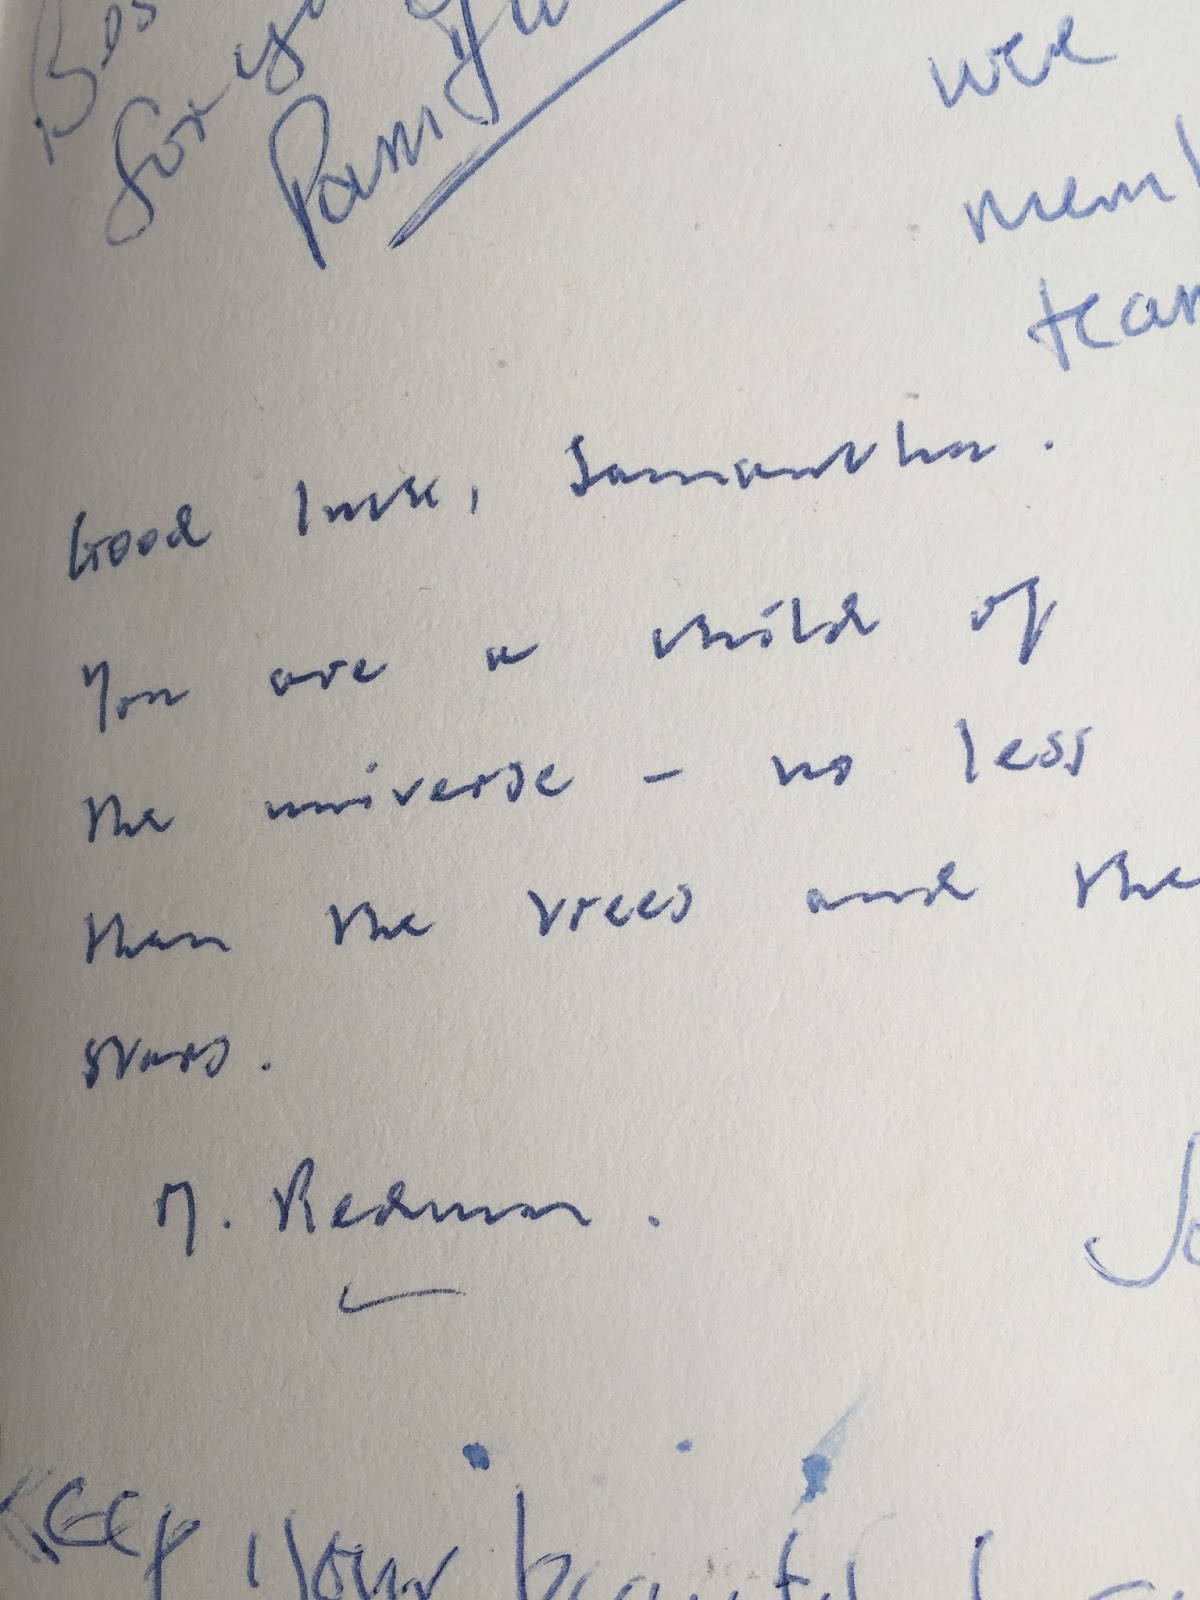 for
Pam
wee
team
Good luck, Samantha.
You are a child of
the universe - no less
than the trees and the
stars.
M. Redman.
Keep your beautiful